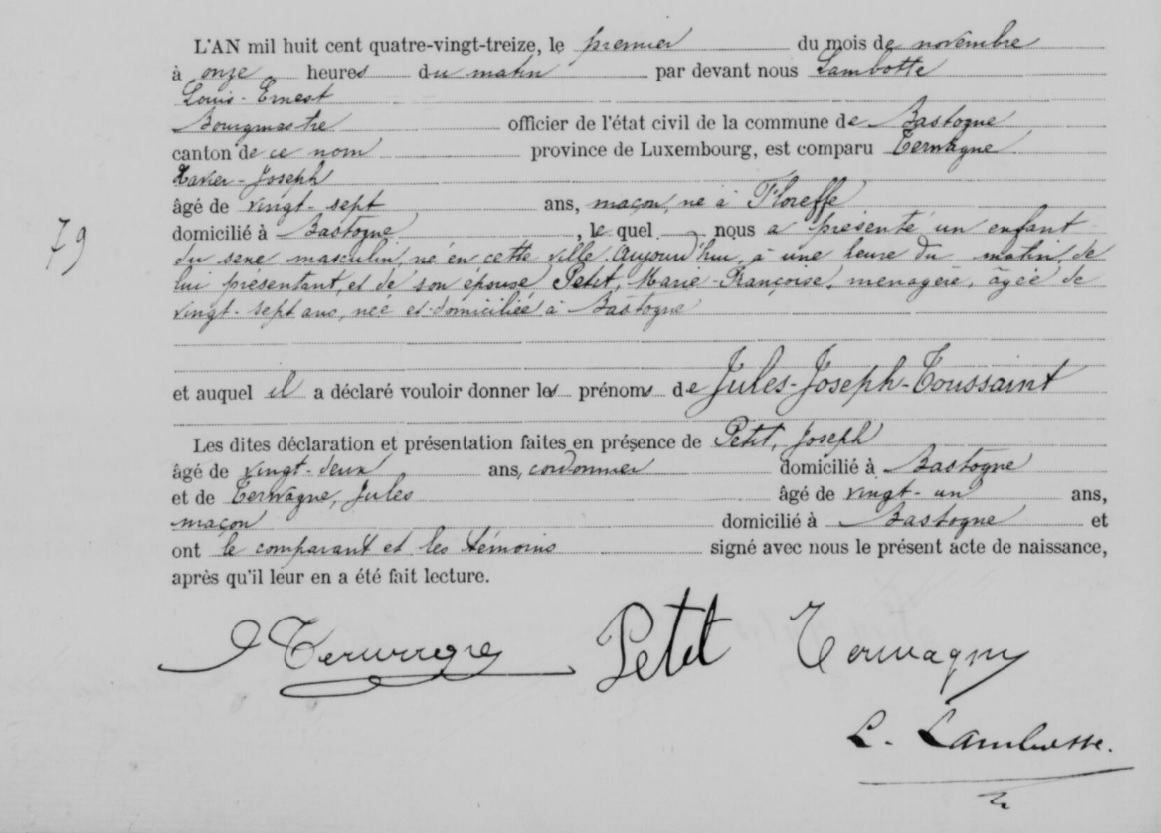 L'AN mil huit cent quatre-vingt-treize, le premier du mois de novembre
à onze heures du matin par devant nous Lambotte
Louis-Ernest
Bourgmestre officier de l'état civil de la commune de Bastogne
canton de ce nom province de Luxembourg, est comparu Terwagne
Xavier-Joseph
âgé de vingt-sept ans, maçon, né à Floreffe
domicilié à Bastogne, le quel nous a présenté un enfant
du sexe masculin, né en cette ville aujourd'hui, à une heure du matin, de
lui présentant, et de son épouse Petit, Marie-Françoise, ménagère, âgée de
vingt-sept ans, née et domiciliée à Bastogne
79
et auquel il a déclaré vouloir donner les prénoms de Jules-Joseph-Toussaint
Les dites déclaration et présentation faites en présence de Petit, Joseph
âgé de vingt-deux ans, cordonnier domicilié à Bastogne
et de Terwagne, Jules âgé de vingt-un ans,
maçon domicilié à Bastogne et
ont le comparant et les témoins signé avec nous le présent acte de naissance,
après qu'il leur en a été fait lecture.
Terwagne Petit Terwagne
L. Lambotte.